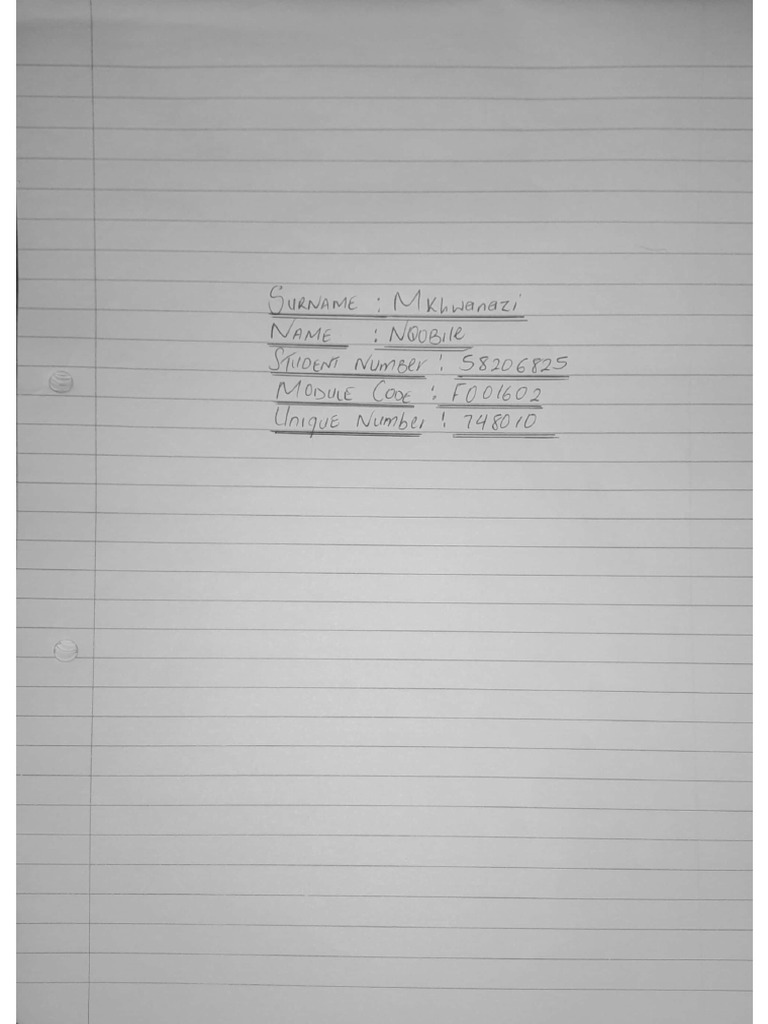 SURNAME : MKhwanazi
NAME : NQOBILE
STUDENT NUMBER : 58206825
MODULE CODE : F001602
UNIQUE NUMBER : 748010